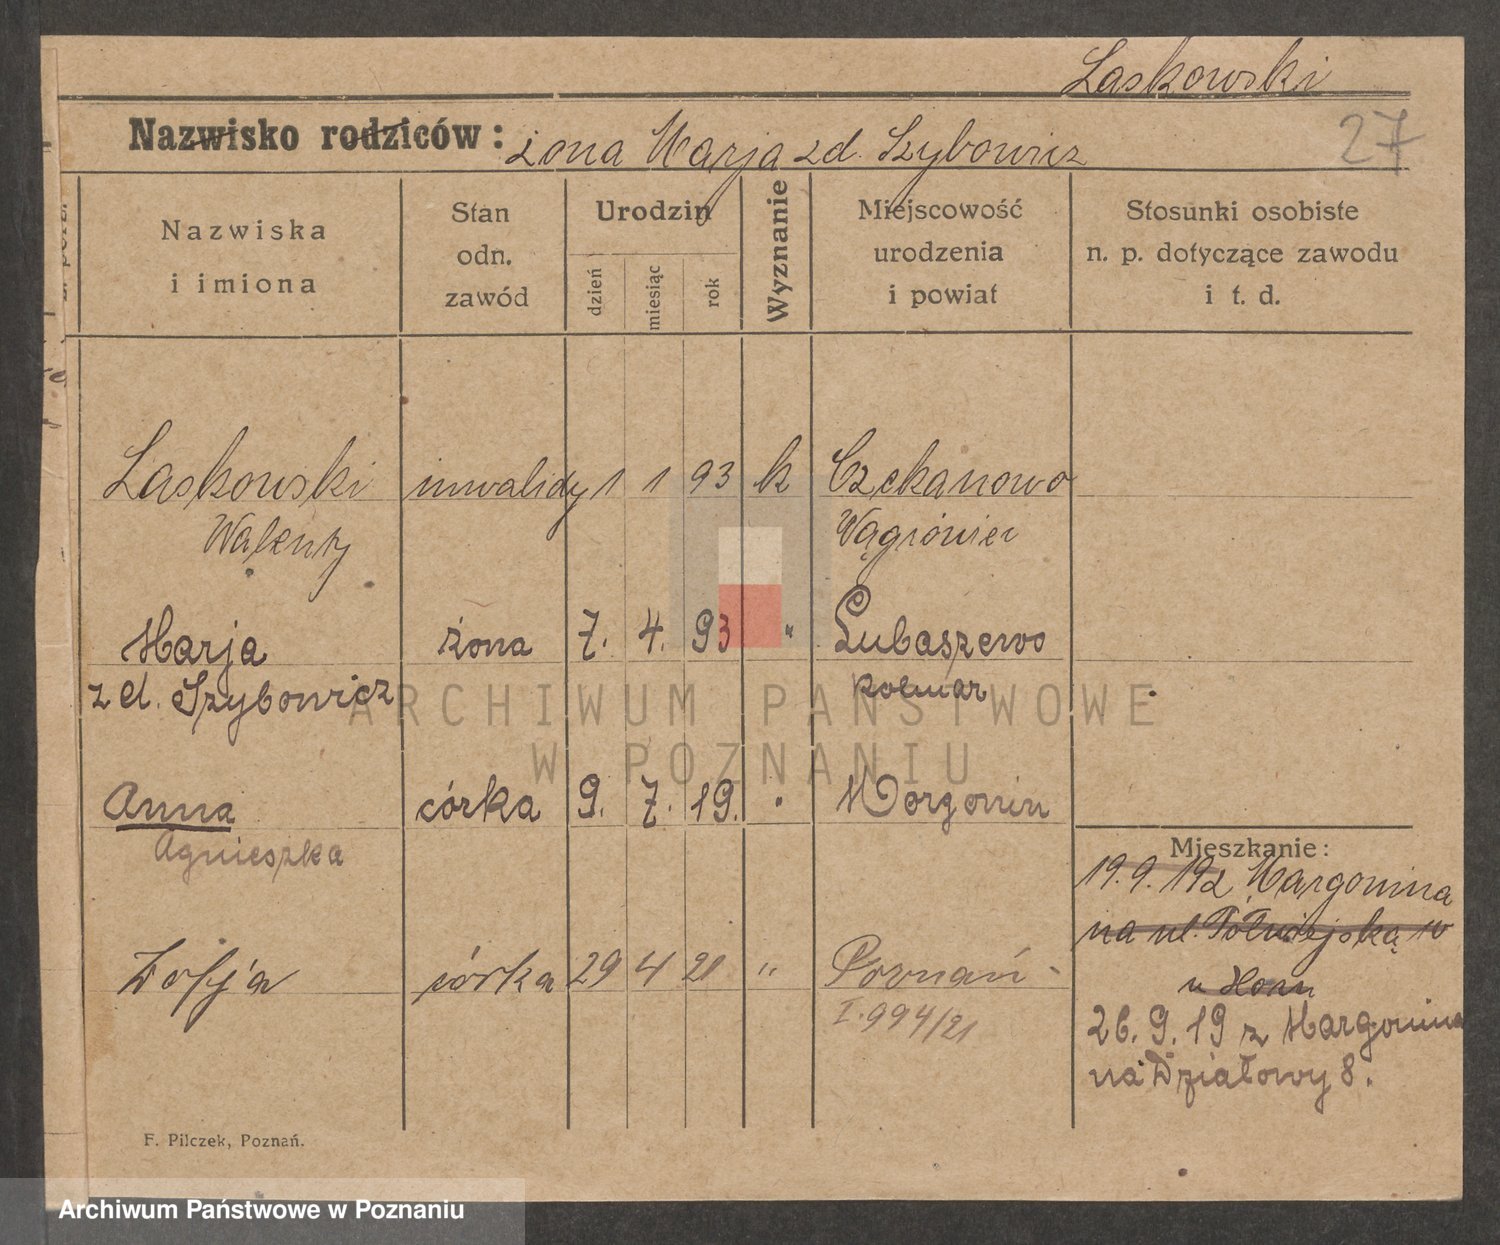 Laskowski
Nazwisko rodziców: żona Marja zd. Szybowicz
27
Nazwiska
i imiona
Stan
odn.
zawód
Urodzin
dzień
miesiąc
rok
Wyznanie
Miejscowość
urodzenia
i powiat
Stosunki osobiste
n. p. dotyczące zawodu
i t. d.
Laskowski inwalidy 1 1 93 k Czekanowo
Walenty Wągrówiec
Marja żona 7. 4. 93 " Lubaszewo
zd. Szybowicz Kolmar
ARCHIWUM PAŃSTWOWE
W POZNANIU
Anna córka 9. 7. 19. " Margonin
Agnieszka
Mieszkanie:
19.9.19 z Margonina
na ul.
Zofja córka 29 4 21 " Poznań
u
I. 994/21
26.9.19 z Margonina
na Działowy 8.
F. Pilczek, Poznań.
Archiwum Państwowe w Poznaniu